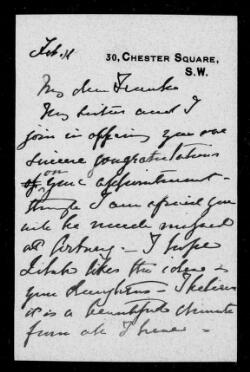 Feb. 11
30, CHESTER SQUARE,
S.W.
My dear Franks
My sisters and I
join in offering you our
sincere congratulations
on your appointment -
though I am afraid you
will be much missed
at - I hope
likes the idea &
your daughters - I believe
it is a beautiful climate
from all I hear -